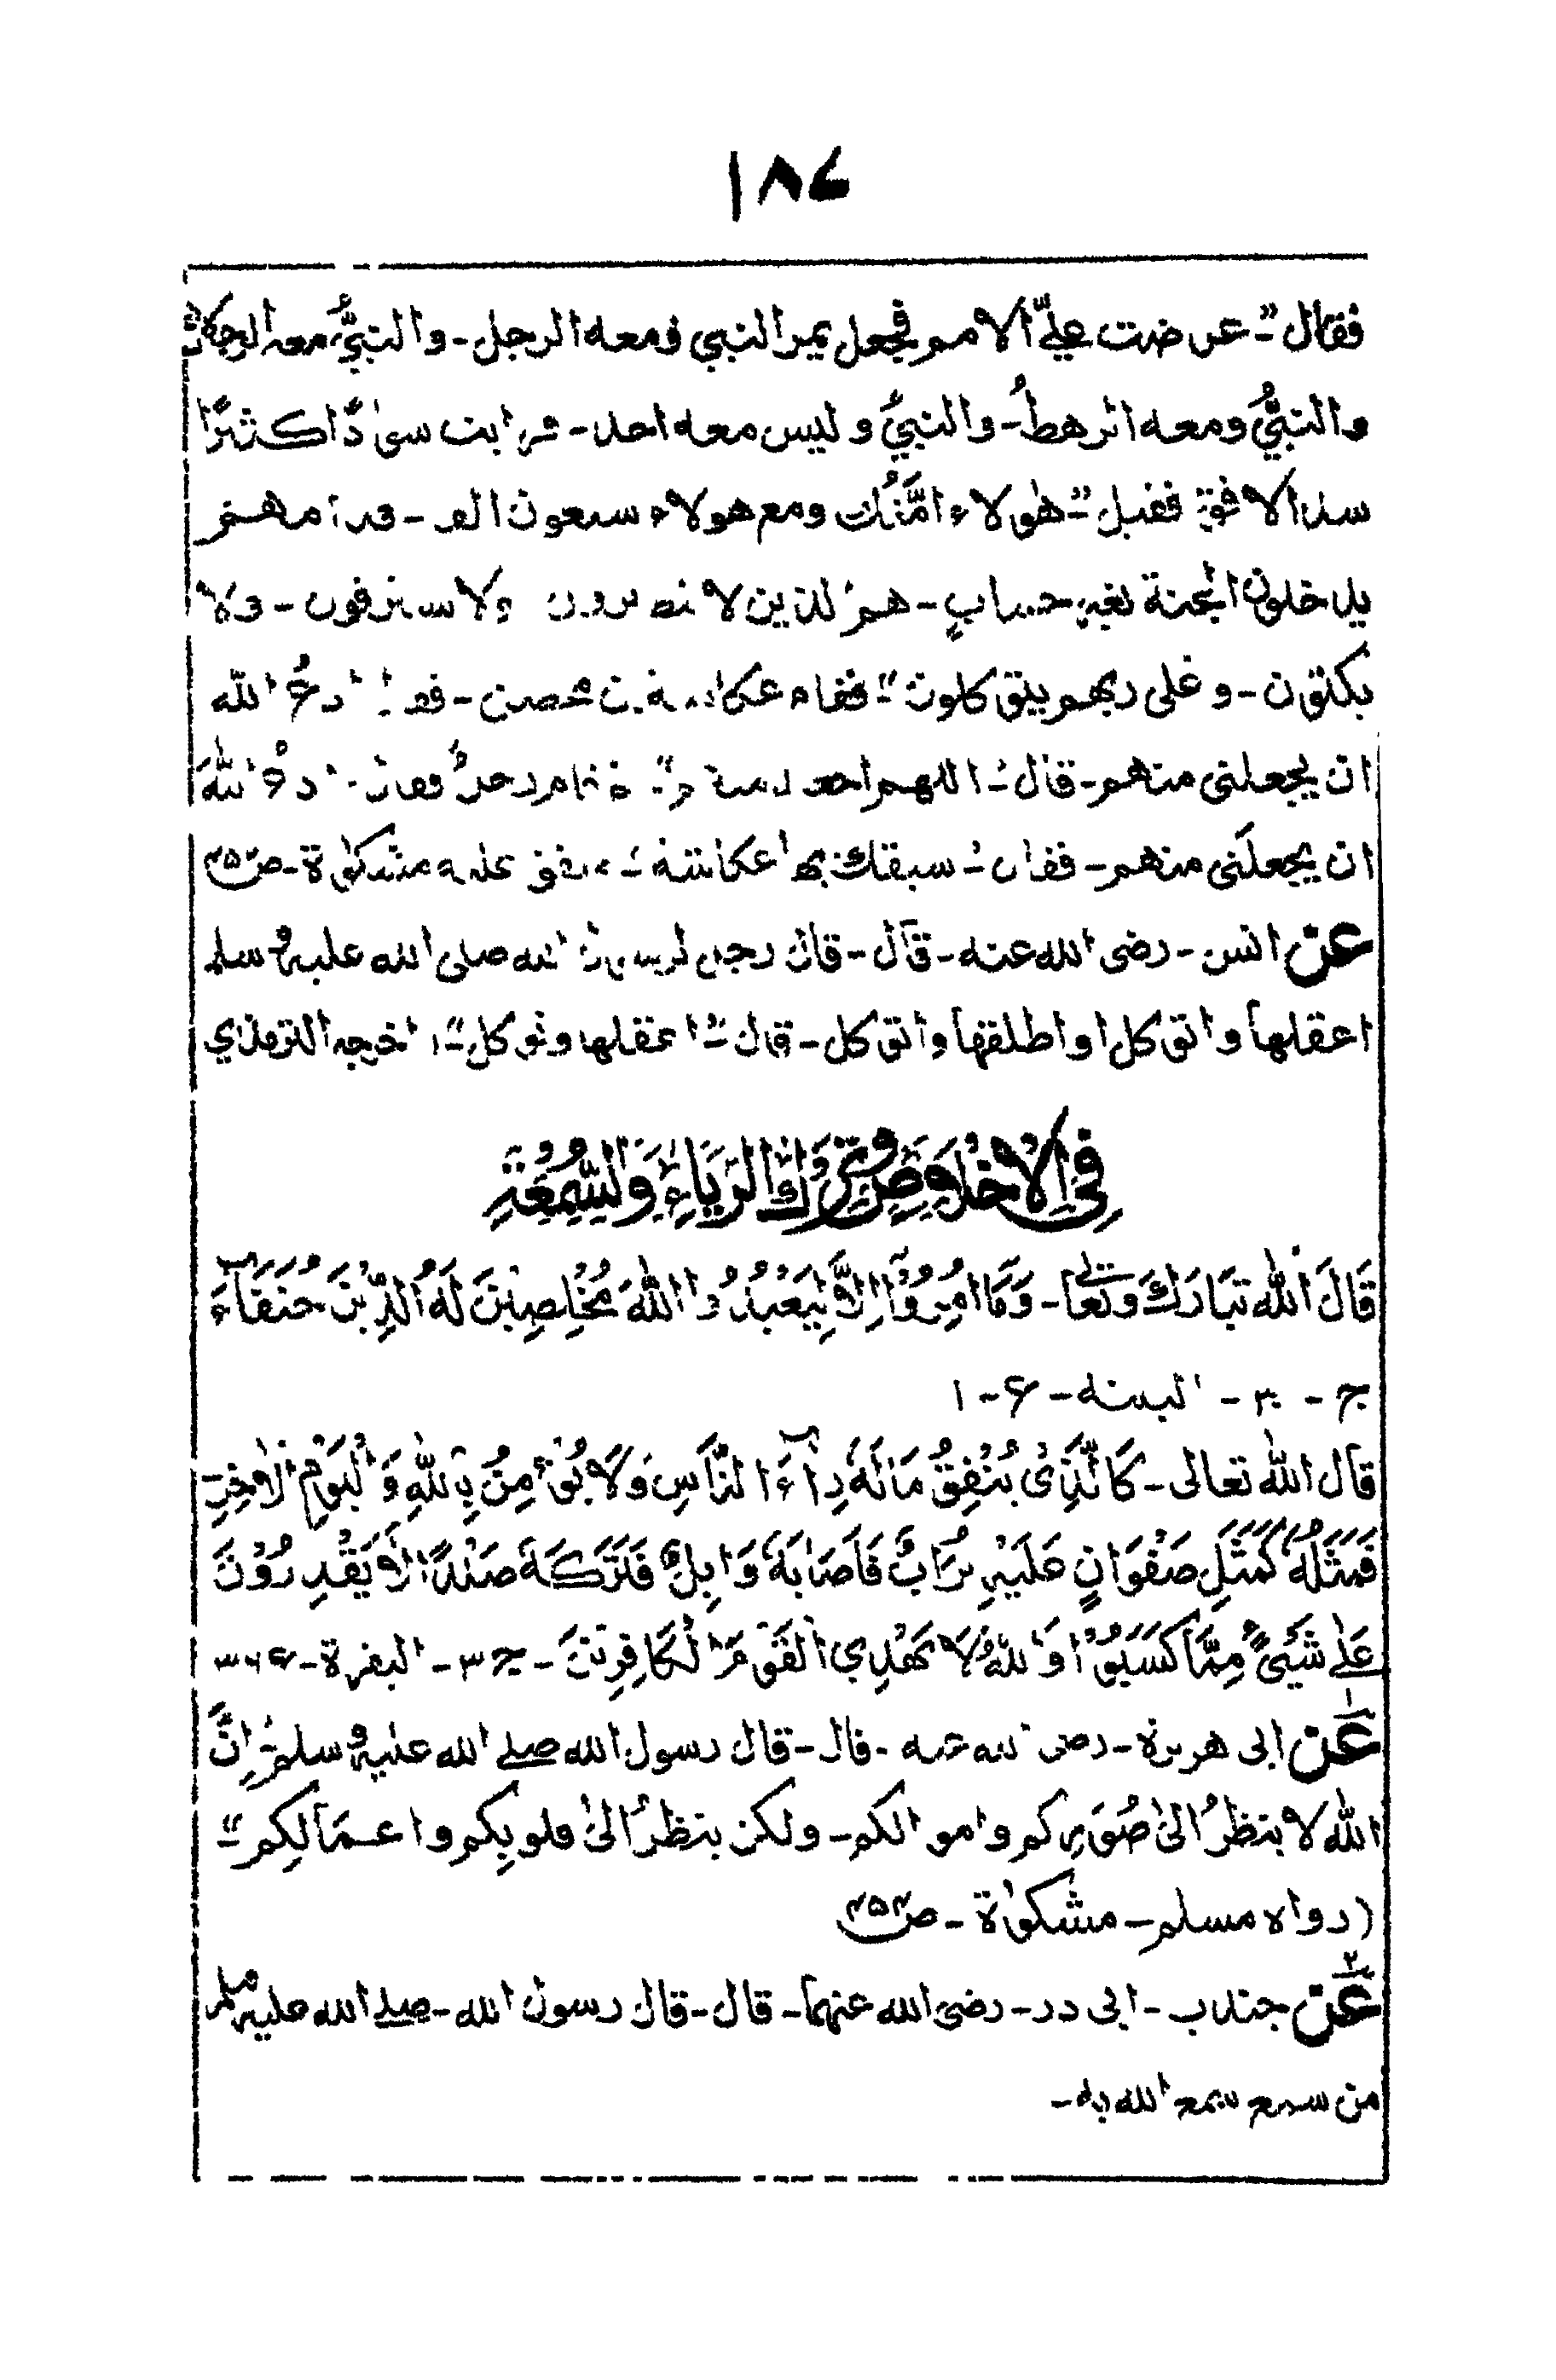 ۱۸۴
فقال "- عرضت عليّ الامم فجعل يمر النبي ومعه الرجل - والنبيُّ معه الرجلان
والنبيُّ ومعه الرهطُ - والنبيُّ وليس معه احد - فرايت سوادًا كثيرًا
سد الافق فقيل "- هٰولاء امّتُك ومع هولاء سبعون الف - قدامهم
يدخلون الجنة بغير حساب - هم الذين لا يتطيرون ولا يسترقون - ولا
يكتوون - وعلى ربهم يتوكلون "- فقام عكاشة بن محصن - فقال ادعُ الله
ان يجعلنى منهم - قال - اللهم اجعله منهم "- ثم قام رجلٌ فقال - ادعُ اللهَ
ان يجعلَنى منهم - فقال - سبقك بها عكاشة - متفق عليه مشكوٰة - ص
عن انس - رضى الله عنه - قال - قال رجل لرسول الله صلى الله عليه وسلم
اعقلها واتوكل او اطلقها واتوكل - قال "- اعقلها وتوكل "- اخرجه الترمذي
فِى الِاخْلَاصِ وَتَرْكِ الرِّيَاءِ وَالسُّمْعَةِ
قَالَ اللهُ تَبَارَكَ وَتَعَالٰى - وَمَا اُمِرُوْٓا اِلَّا لِيَعْبُدُوا اللهَ مُخْلِصِيْنَ لَهُ الدِّيْنَ حُنَفَآءَ
ج - ۳۰ - البينه - ع - ۱
قال اللهُ تعالى - كَالَّذِىْ يُنْفِقُ مَالَهٗ رِئَآءَ النَّاسِ وَلَا يُؤْمِنُ بِاللهِ وَالْيَوْمِ الْاٰخِرِ -
فَمَثَلُهٗ كَمَثَلِ صَفْوَانٍ عَلَيْهِ تُرَابٌ فَاَصَابَهٗ وَابِلٌ فَتَرَكَهٗ صَلْدًا لَا يَقْدِرُوْنَ
عَلٰى شَيْئٍ مِّمَّا كَسَبُوْا وَاللهُ لَا يَهْدِي الْقَوْمَ الْكَافِرِيْنَ - ج ۳ - البقرة - ع ۳۶
۱
عَن ابى هريرة - رضى الله عنه - قال - قال رسول الله صلے الله عليه وسلم - اِنَّ
اللهَ لا ينظرُ الىٰ صُوَرِكم واموالكم - ولكن ينظرُ الىٰ قلوبِكم واعمَالِكم "-
(رواه مسلم - مشكوٰة - ص
۲
عَن جندب - ابى ذر - رضى الله عنهما - قال - قال رسول الله - صلے الله عليه وسلم
من سمع سمع الله به -